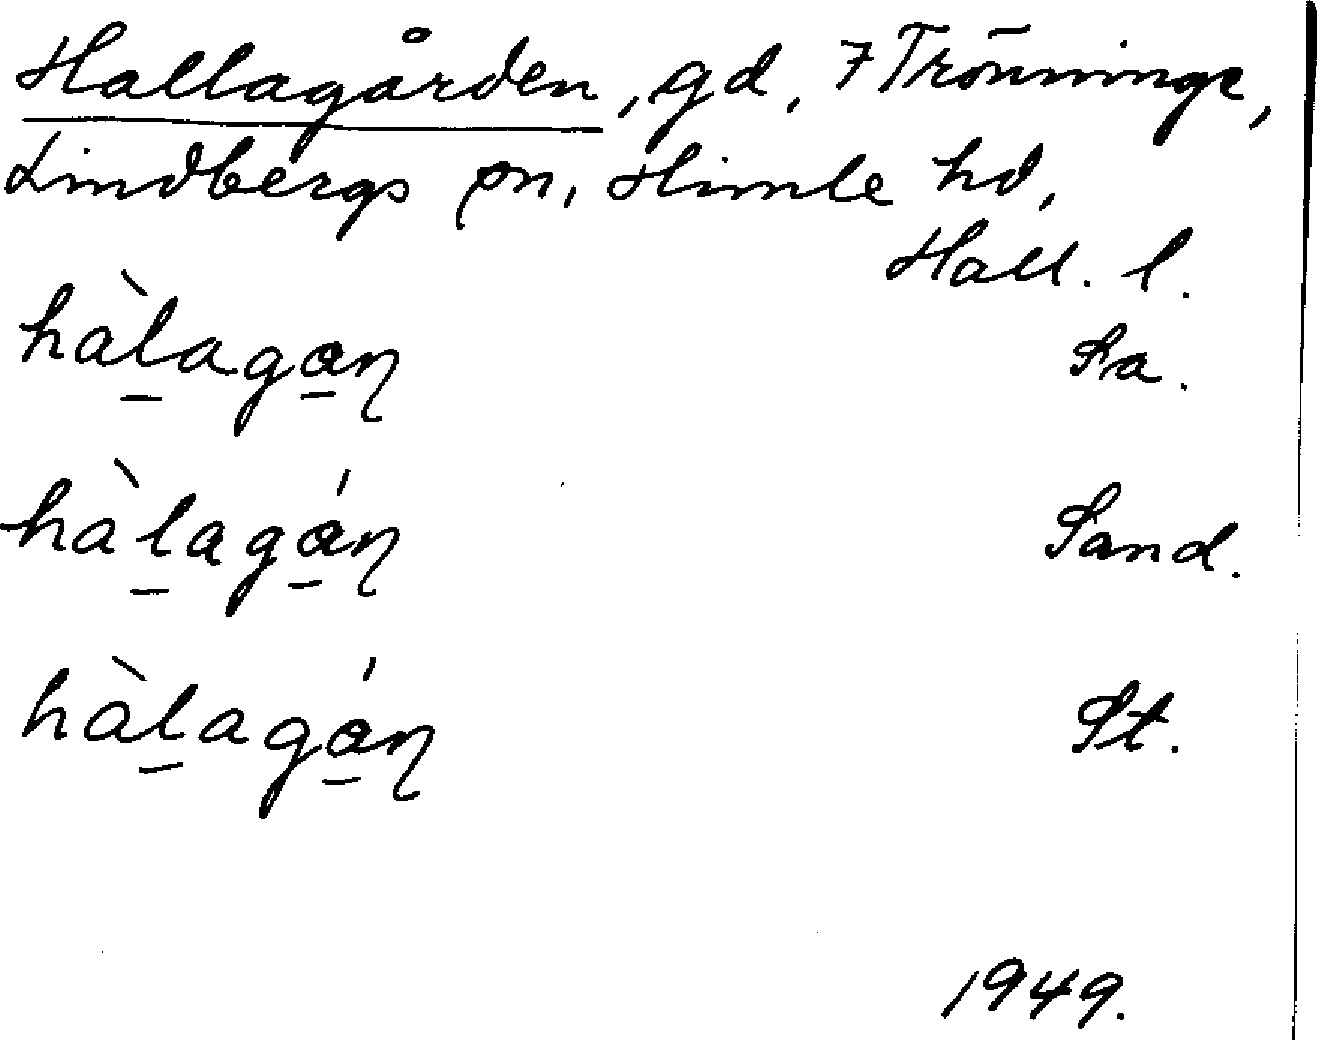 Hallagården, gd, 7 Trönninge,
Lindbergs sn, Himle hd,
Hall. l.
hàlagan̡ Sa.
hàlagán̡ Sand.
hàlagán̡ St.
1949.